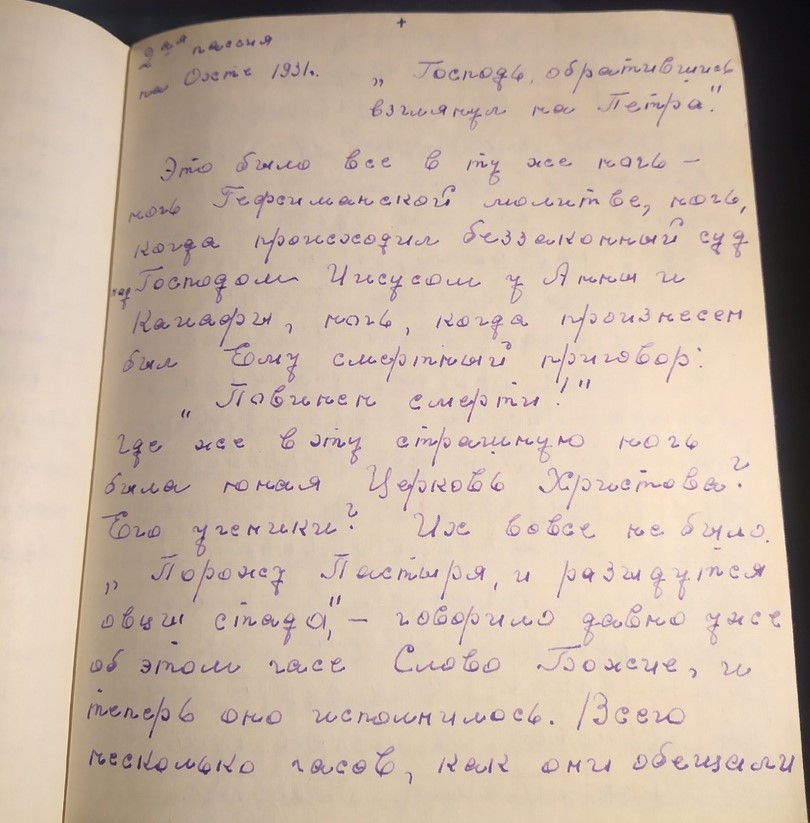 +
2ая пассия
на Охте 1931г.
„Господь, обратившись
взглянул на Петра".
Это было все в ту же ночь —
ночь Гефсиманской молитве, ночь,
когда происходил беззаконный суд
над Господом Иисусом у Анны и
Каиафы, ночь, когда произнесен
был Ему смертный приговор:
„Повинен смерти!"
Где же в эту страшную ночь
была юная Церковь Христова?
Его ученики? Их вовсе не было.
„Поражу Пастыря, и разыдутся
овцы стада", — говорило давно уже
об этом часе Слово Божие, и
теперь оно исполнилось. /Всего
несколько часов, как они обещали